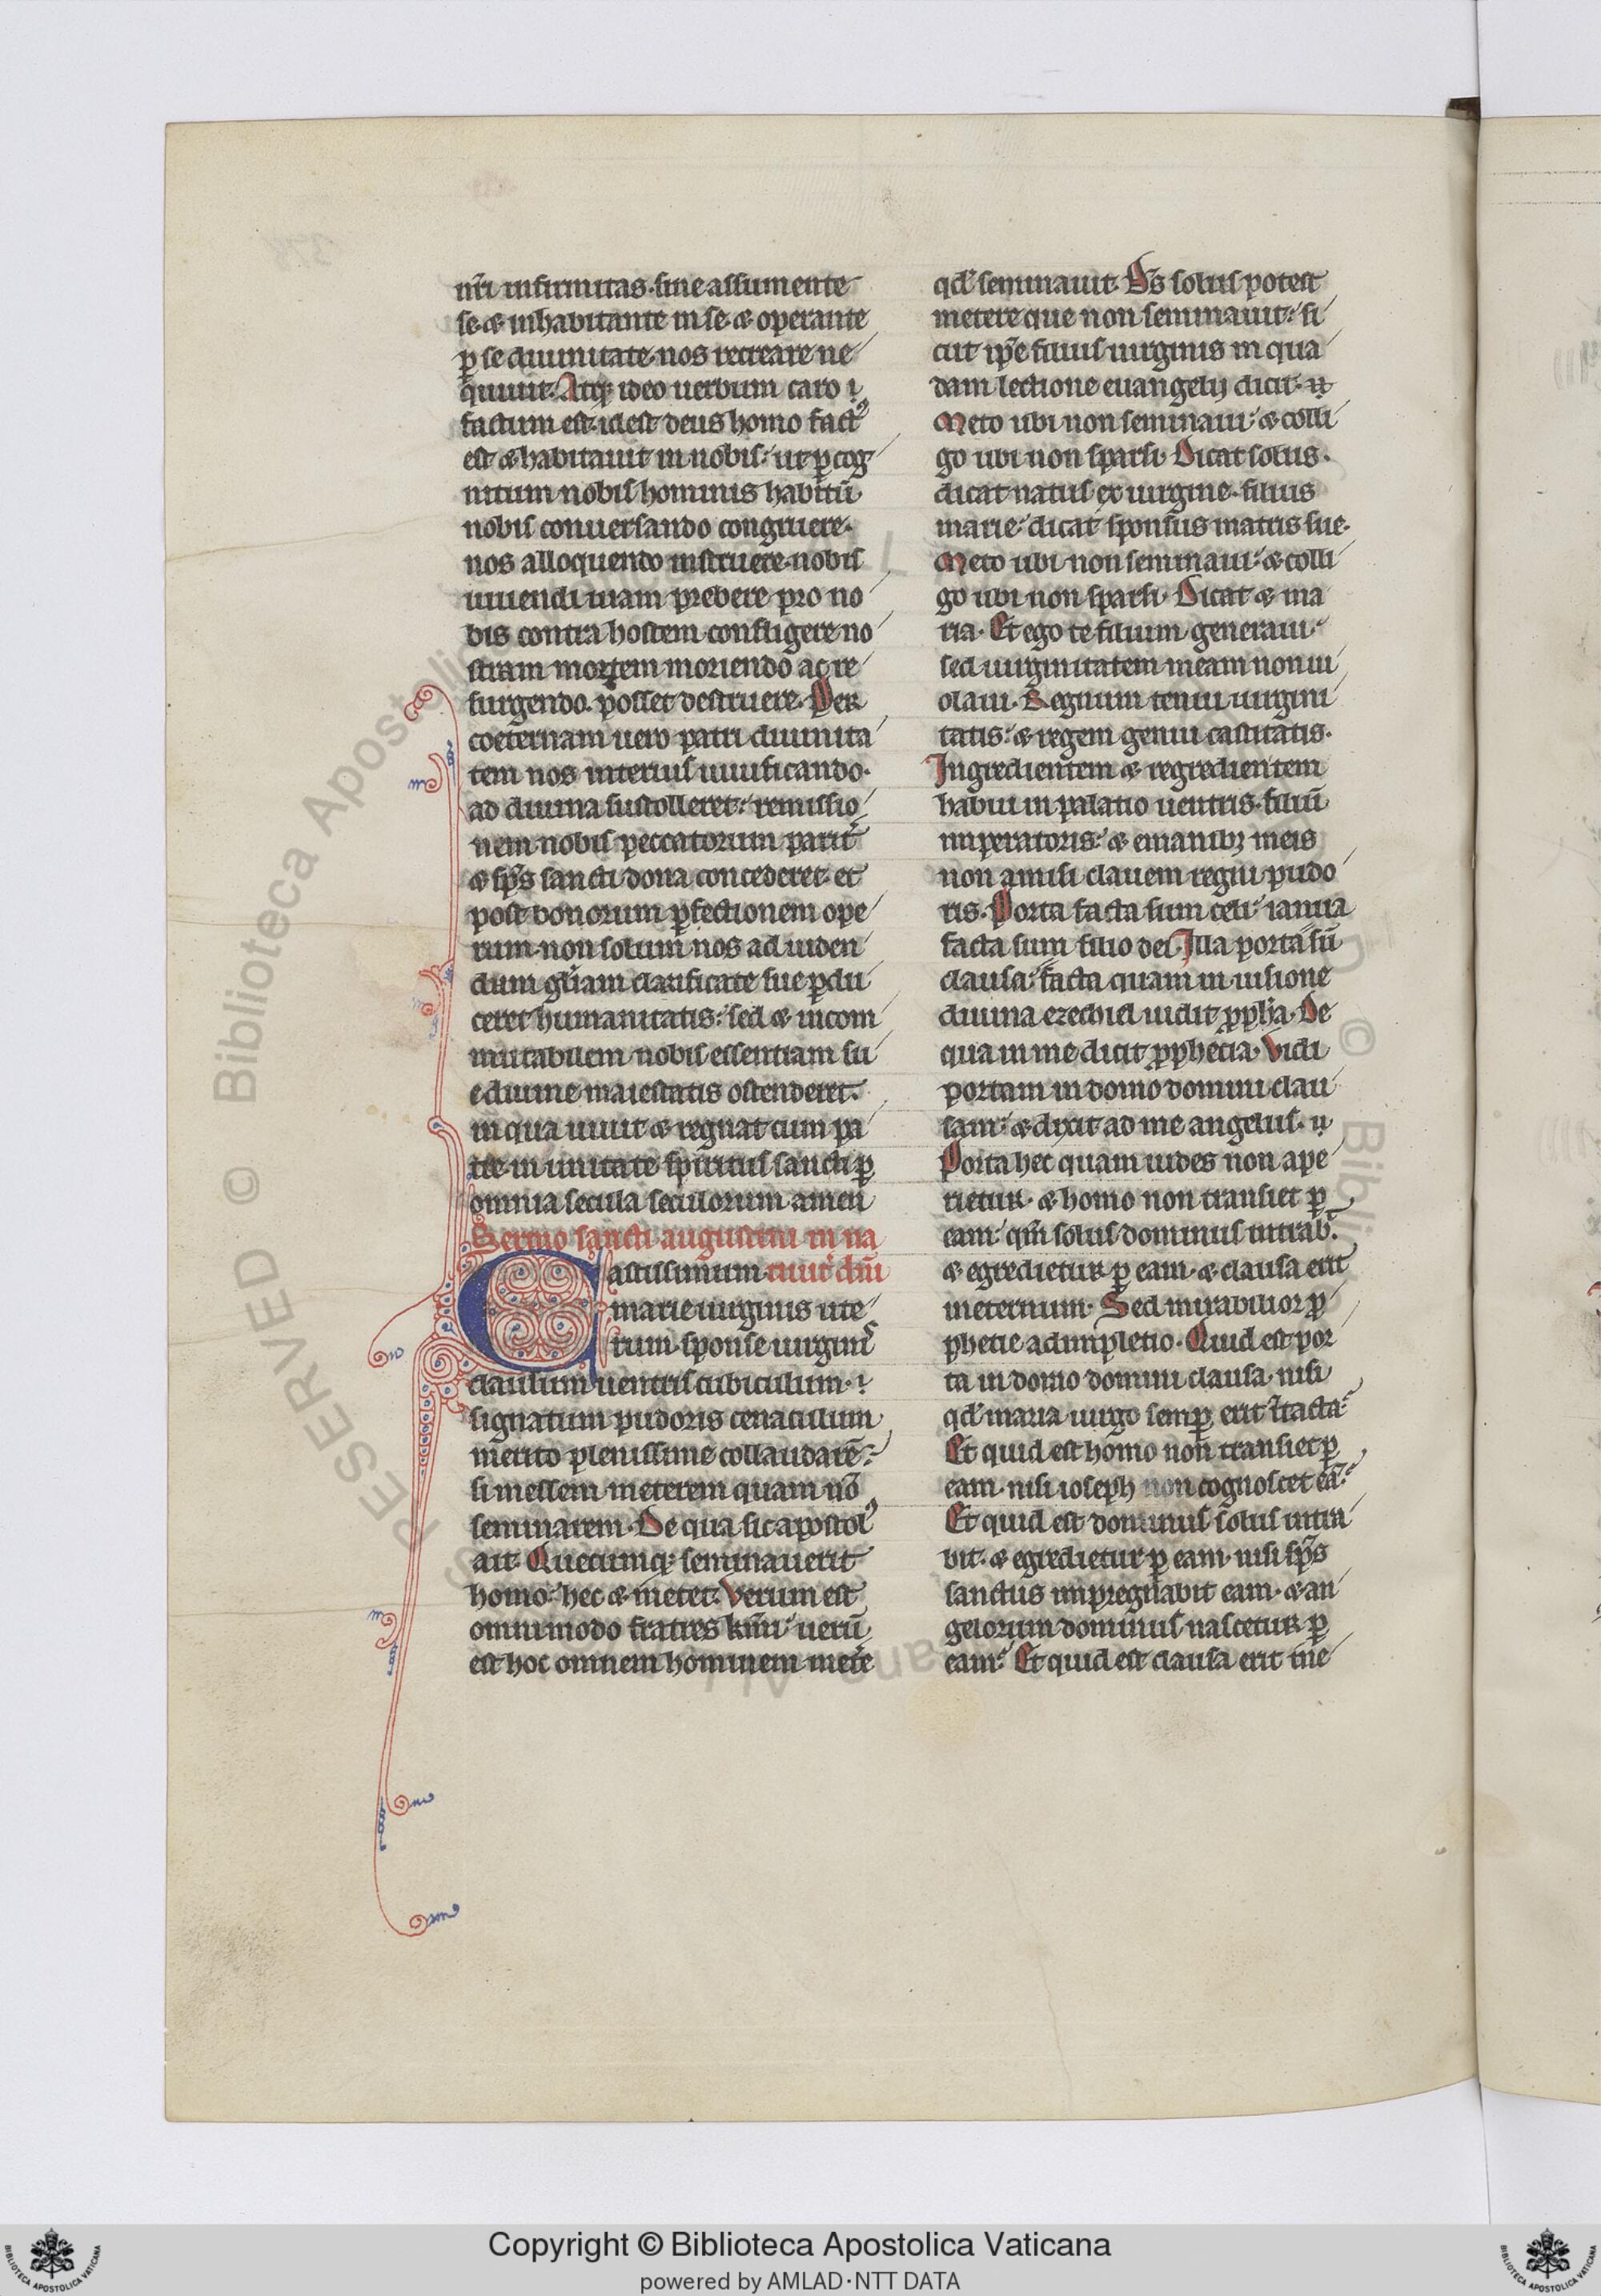 nr̄i infirmitas. sine assumente
se & inhabitante in se & operante
ꝑ se diuinitate. nos recreare ne
quiuit. Atqꝫ ideo uerbum caro
factum est. id est deus homo factꝰ
est & habitauit in nobis. ut ꝑ cog
nitum nobis hominis habitū
nobis conuersando congruere.
nos alloquendo instruere. nobis
uiuendi uiam prebere pro no
bis contra hostem confligere no
stram mortem moriendo ac re
surgendo. posset destruere. Per
coeternam uero patri diuinita
tem nos interius uiuificando.
ad diuina sustolleret: remissio
nem nobis peccatorum parit᷑
& sp̄s sancti dona concederet. et
post bonorum ꝑfectionem ope
rum. non solum nos ad uiden
dum gl̄iam clarificate sue ꝑdu
ceret humanitatis: sed & incom
mutabilem nobis essentiam su
e diuine maiestatis ostenderet.
in qua uiuit & regnat cum pa
tre in unitate spiritus sancti ꝑ
omnia secula seculorum amen
Sermo sancti augustini in na
Castissimum tiuit᷑ dn̄i
marie uirginis ute
rum. sponse uirginis
clausum uentris cubiculum.
signatum pudoris cenaculum
merito plenissime collaudarē:
si messem meterem quam nō
seminarem. De qua sic apostolꝰ
ait. Quecumqꝫ seminauerit
homo: hec & metet. Verum est
omnimodo fratres km̄i: uerū
est hoc omnem hominem mete᷑
qd̓ seminauit. Ds̄ solus potest
metere que non seminauit: si
cut ip̄e filius uirginis in qua
dam lectione euangelij dicit.
Meto ubi non seminaui: & colli
go ubi non sparsi. Dicat solus.
dicat natus ex uirgine. filius
marie: dicat sponsus matris sue.
Meto ubi non seminaui: & colli
go ubi non sparsi. Dicat & ma
ria. Et ego te filium generaui:
sed uirginitatem meam non ui
olaui. Regnum tenui uirgini
tatis: & regem genui castitatis.
Ingredientem & regredientem
habui in palatio uentris. filiū
imperatoris: & e manibꝫ meis
non amisi clauem regni pudo
ris. Porta facta sum celi: ianua
facta sum filio dei. Illa porta sū
clausa: facta quam in uisione
diuina ezechiel uidit ꝓpħa. De
qua in me dicit ꝓphetia. Vidi
portam in domo domini clau
sam: & dixit ad me angelus.
Porta hec quam uides non ape
rietur. & homo non transiet ꝑ
eam: qm̄ solus dominus intrab᷑.
& egredietur ꝑ eam. & clausa erit
in eternum. Sed mirabilior ꝓ
phetie adimpletio. Quid est por
ta in domo domini clausa. nisi
qd̓ maria uirgo semꝑ erit ītacta:
Et quid est homo non transiet ꝑ
eam. nisi ioseph non cognoscet eā:
Et quid est dominus solus intra
bit. & egredietur ꝑ eam. nisi sp̄s
sanctus impregnabit eam. & an
gelorum dominus nascetur ꝑ
eam: Et quid est clausa erit ine
Copyright © Biblioteca Apostolica Vaticana
powered by AMLAD·NTT DATA